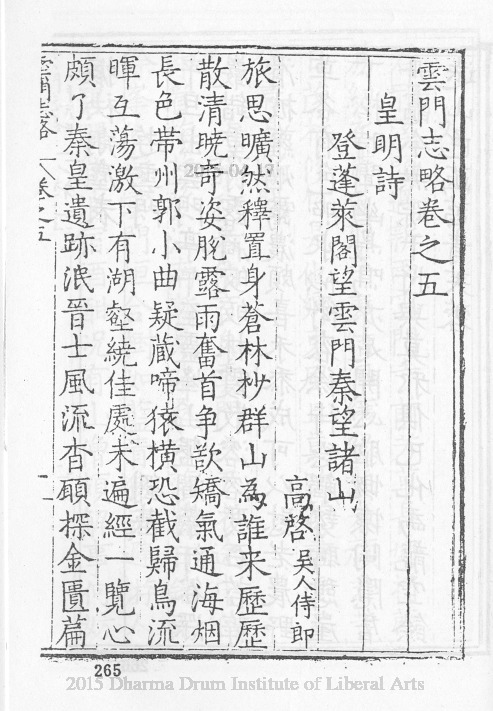 雲門志略卷之五
皇明詩
登蓬萊閣望雲門秦望諸山
高啓吳人侍郎
旅思曠然釋置身蒼林杪群山為誰来歷歷
散清曉奇姿脫露雨奮首争欲矯氣通海烟
長色帶州郭小曲疑蔵啼猿横恐截歸鳥流
暉互蕩激下有湖壑繞佳處未遍經一覽心
頗了秦皇遺跡泯晉士風流杳願探金匱篇
雲門志略 卷之五 一
265
2015 Dharma Drum Institute of Liberal Arts